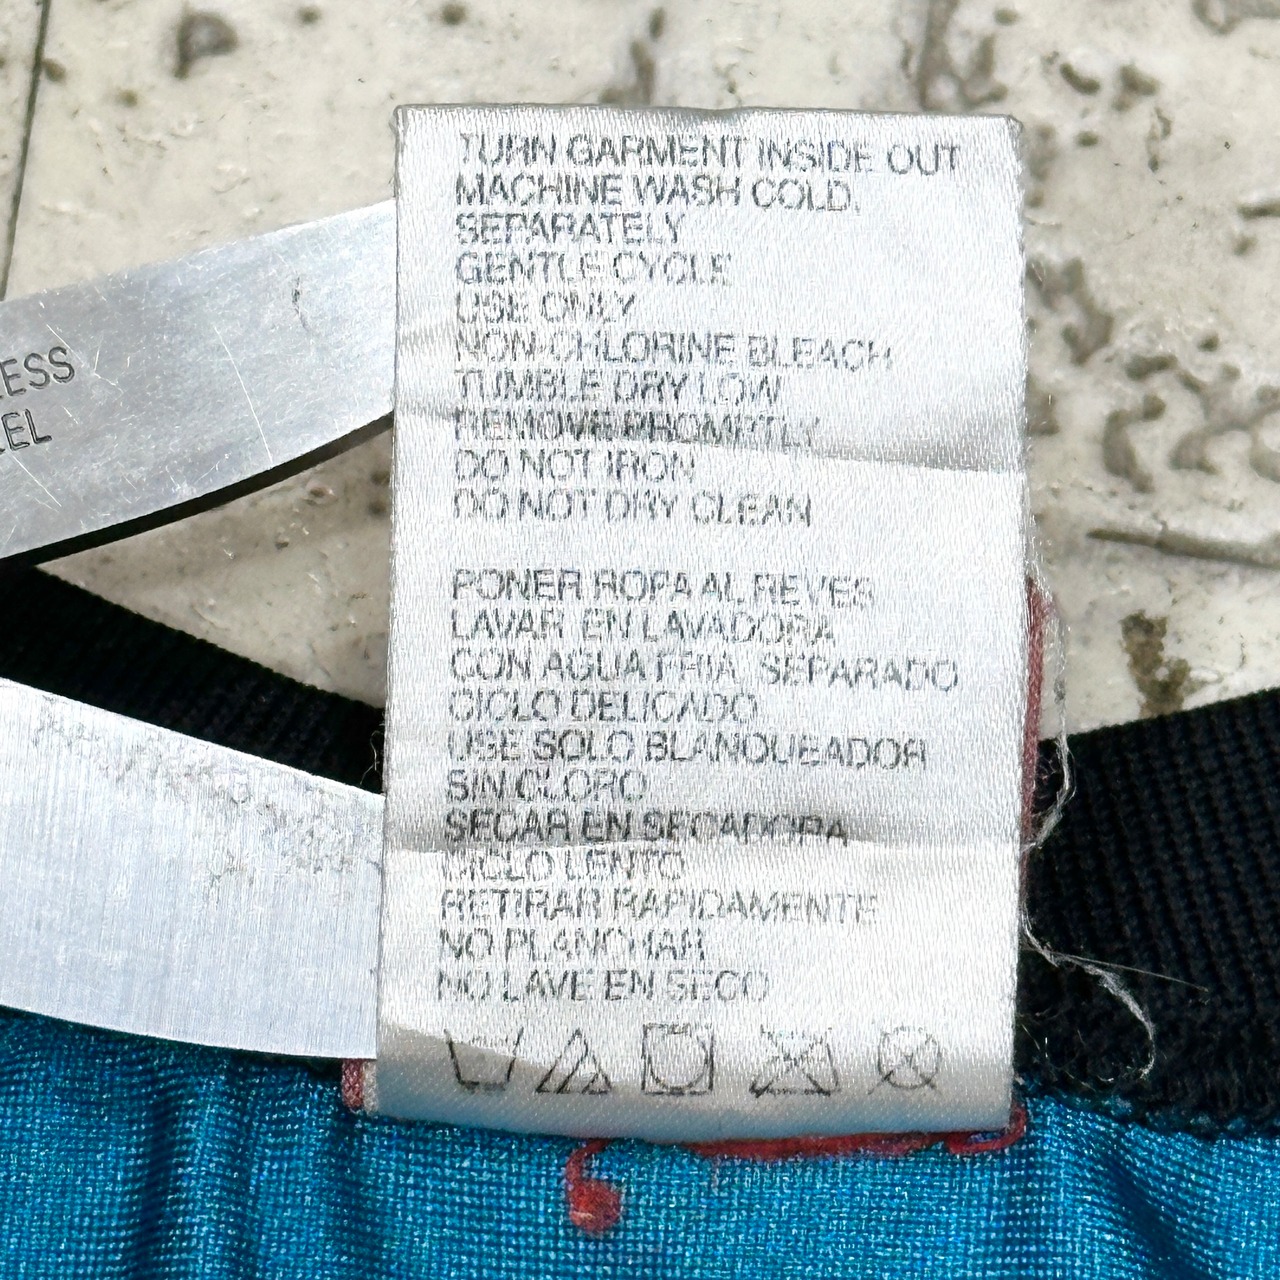 TURN GARMENT INSIDE OUT
MACHINE WASH COLD,
SEPARATELY
GENTLE CYCLE
USE ONLY
NON-CHLORINE BLEACH
TUMBLE DRY LOW
REMOVE PROMPTLY
DO NOT IRON
DO NOT DRY CLEAN
PONER ROPA AL REVES
LAVAR EN LAVADORA
CON AGUA FRIA, SEPARADO
CICLO DELICADO
USE SOLO BLANQUEADOR
SIN CLORO
SECAR EN SECADORA
CICLO LENTO
RETIRAR RAPIDAMENTE
NO PLANCHAR
NO LAVE EN SECO
ESS
EL